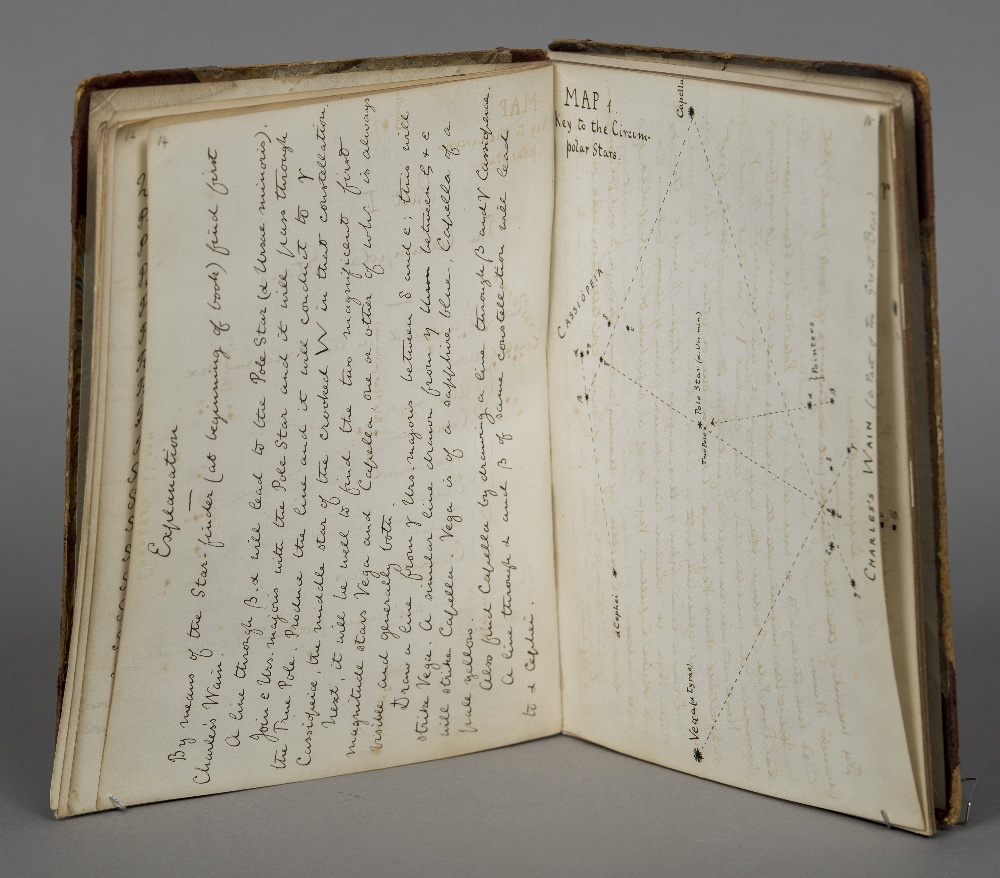 14
Explanation
By means of the Star-finder (at beginning of book) find first
Charles's Wain.
A line through β. α will lead to the Pole Star (α Ursae minoris).
Join ε Urs. majoris with the Pole Star and it will pass through
the True Pole. Produce the line and it will conduct to γ
Cassiopeia, the middle star of the crooked W in that constellation.
Next, it will be well to find the two magnificent first
magnitude stars Vega and Capella, one or other of wh: is always
visible, and generally both.
Draw a line from γ Urs. majoris between δ and ε; thus will
strike Vega. A similar line drawn from η between ζ & ε
will strike Capella. Vega is of a sapphire blue, Capella of a
pale yellow.
Also find Capella by drawing a line through β and γ Cassiopeia.
A line through α and β of same constellation will lead
to α Cephei.
MAP 1.
Key to the Circum-
polar Stars.
Capella
CASSIOPEIA
δ
ε
α
η
γ
β
Pole Star (α Urs. min:)
True Pole
Pointers
α
β
δ
γ
ε
ζ
η
CHARLES'S WAIN (a Part of the Great Bear)
α Cephei
Vega (α Lyrae)